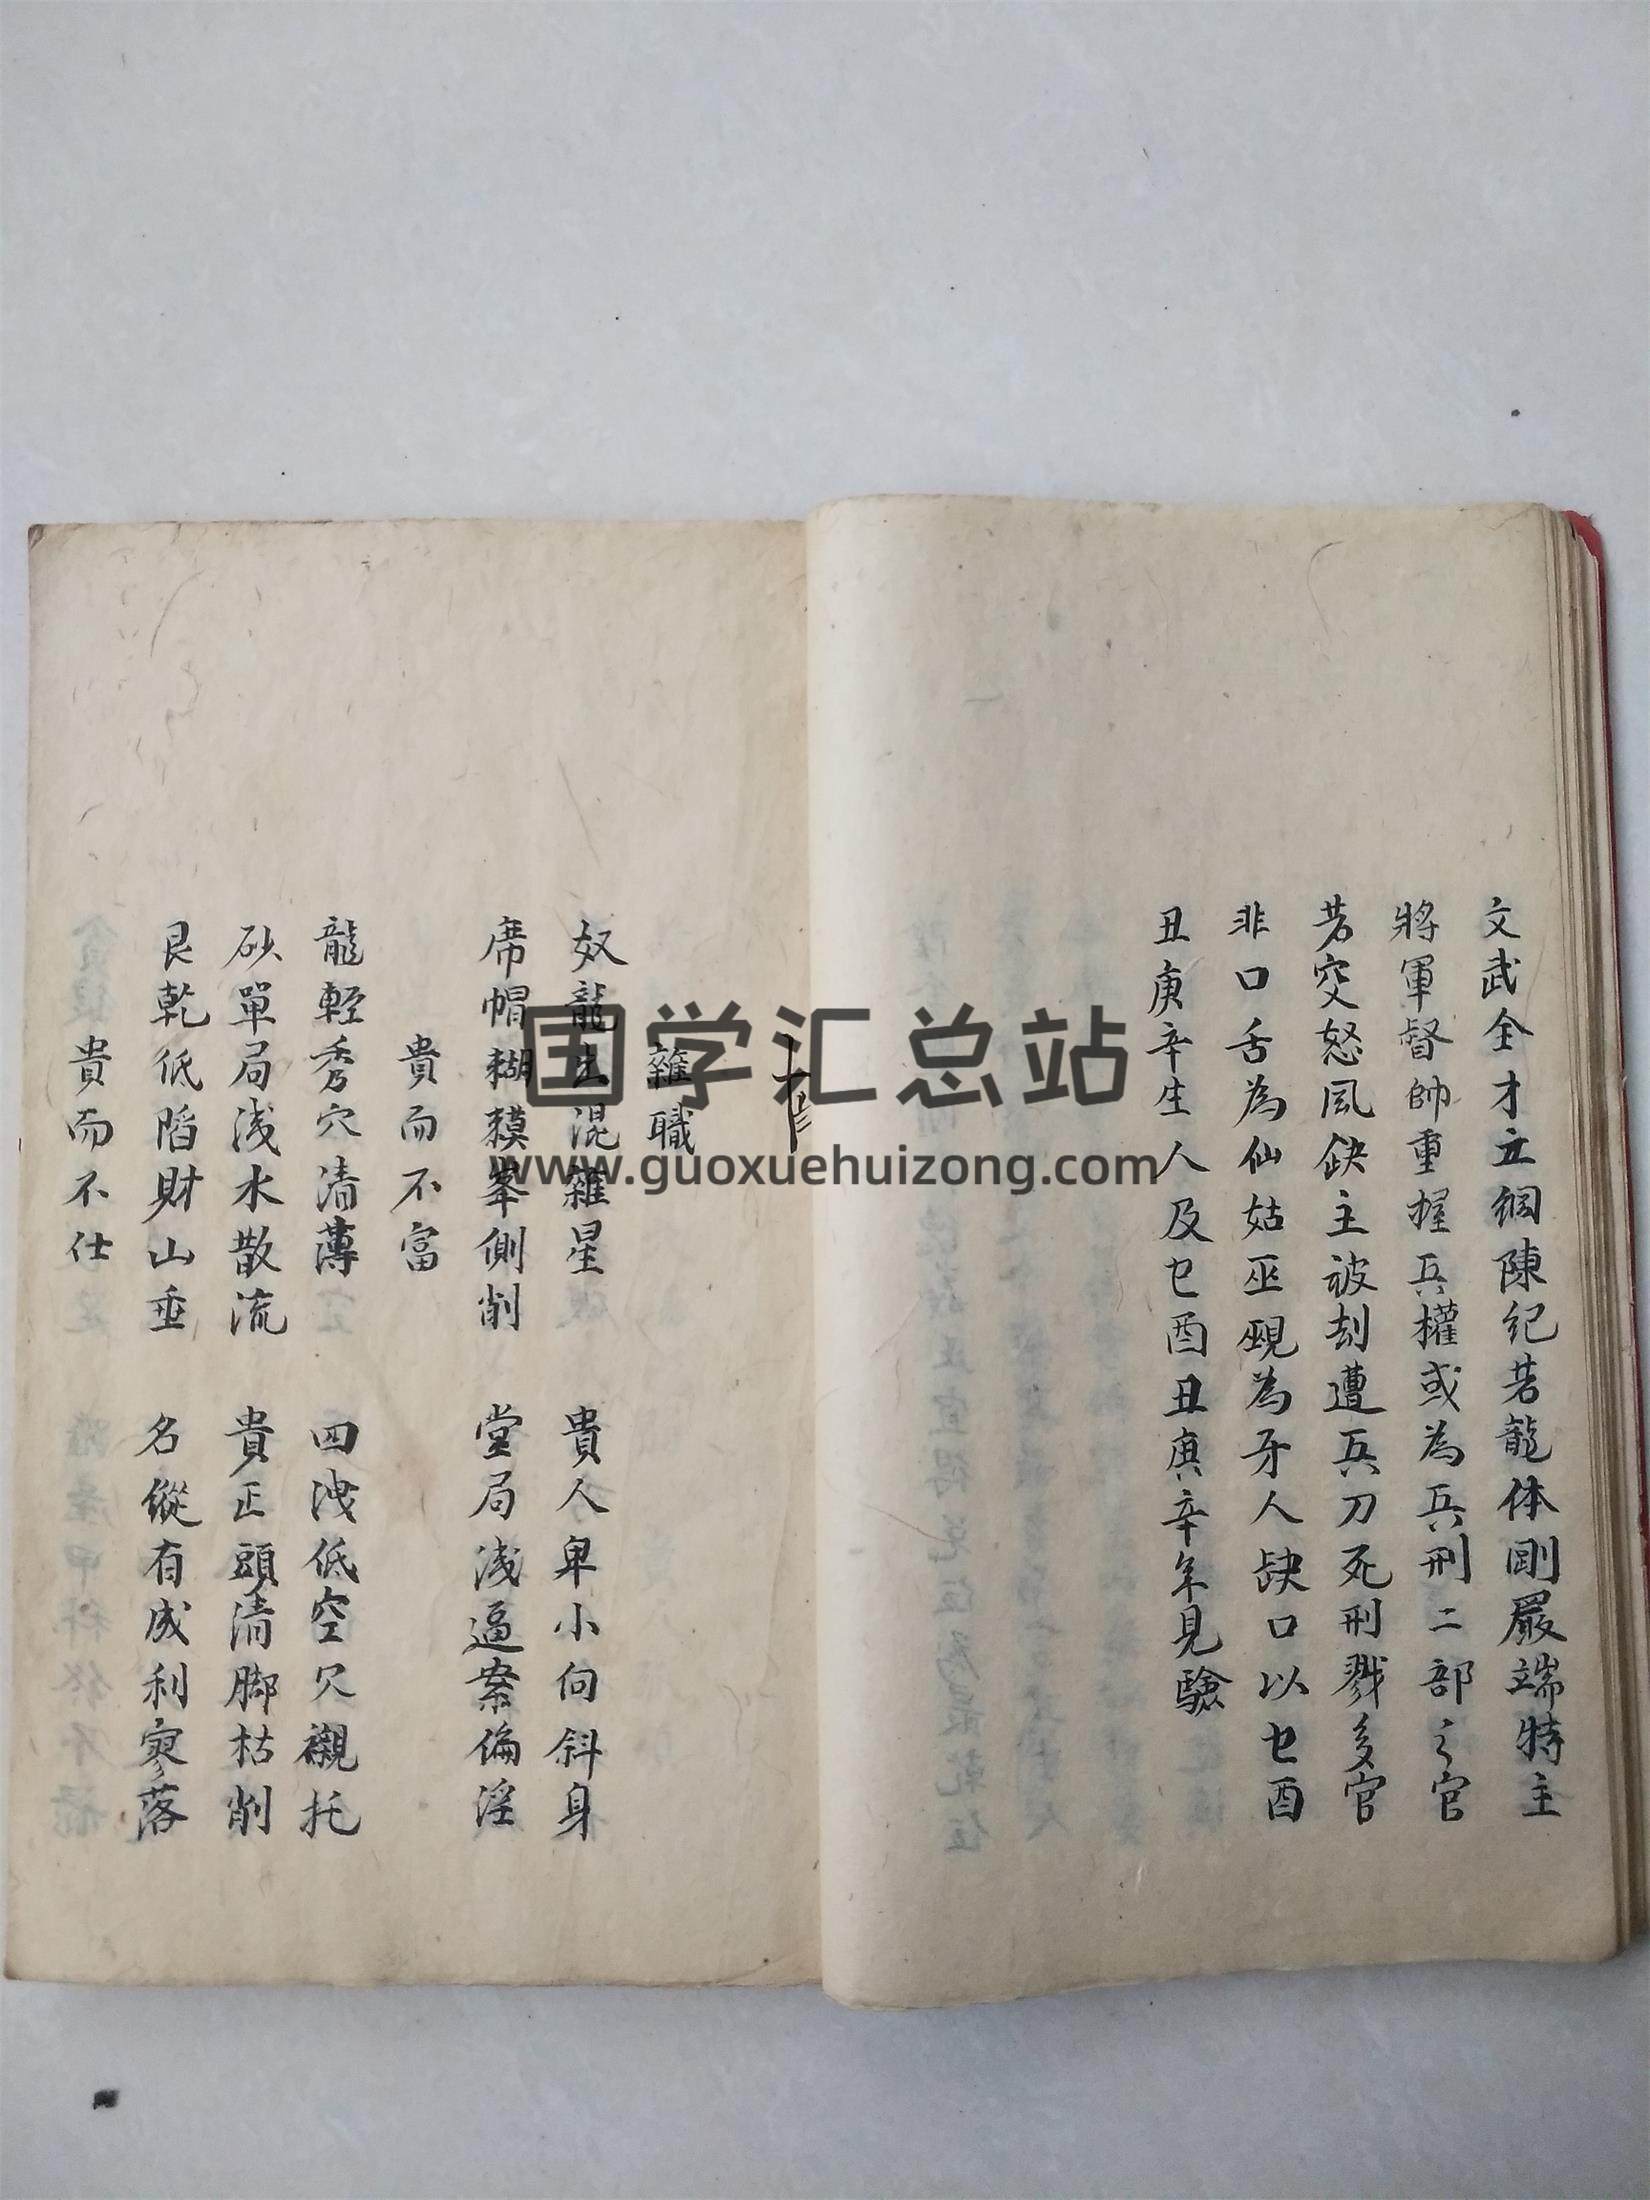 文武全才立綱陳紀若龍体剛嚴端特主
將軍督帥重握兵權或為兵刑二部之官
若突怒風缺主被刦遭兵刀死刑戮多官
非口舌為仙姑巫覡為牙人缺口以巳酉
丑庚辛生人及巳酉丑庚辛年見驗
雜職
奴龍出混雜星 貴人卑小向斜身
席帽糊糢峯側削 堂局浅逼案偏淫
貴而不富
龍輕秀穴清薄 四洩低空穴襯托
砂單局浅水散流 貴正頭清脚枯削
艮乾低陷財山垂 名縱有成利寥落
貴而不仕
国学汇总站
www.guoxuehuizong.com